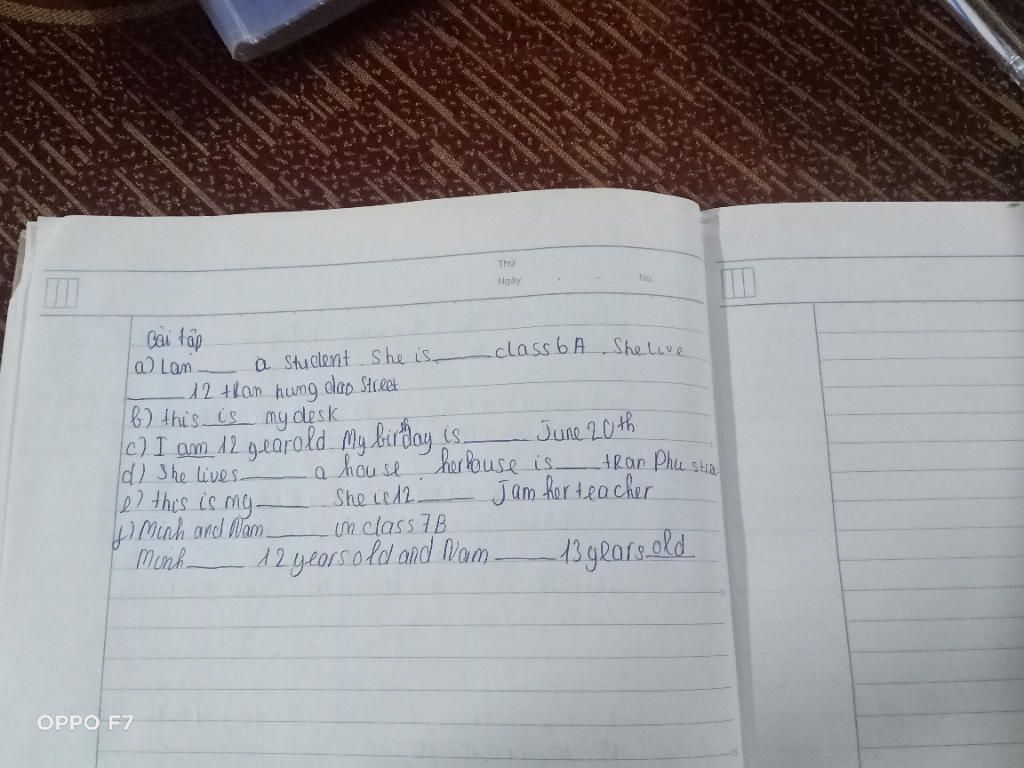 Thứ
Ngày . . No.
Bài tập
a) Lan ____ a student. She is ____ class 6A. She live
____ 12 tran hung dao street
b) this is my desk
c) I am 12 year old My birthday is ____ June 20th
d) She lives ____ a house. her house is ____ tRan Phu stre
e) this is my ____ She is 12 ____ I am her teacher
f) Minh and Nam ____ in class 7B
Minh ____ 12 years old and Nam ____ 13 years old
OPPO F7